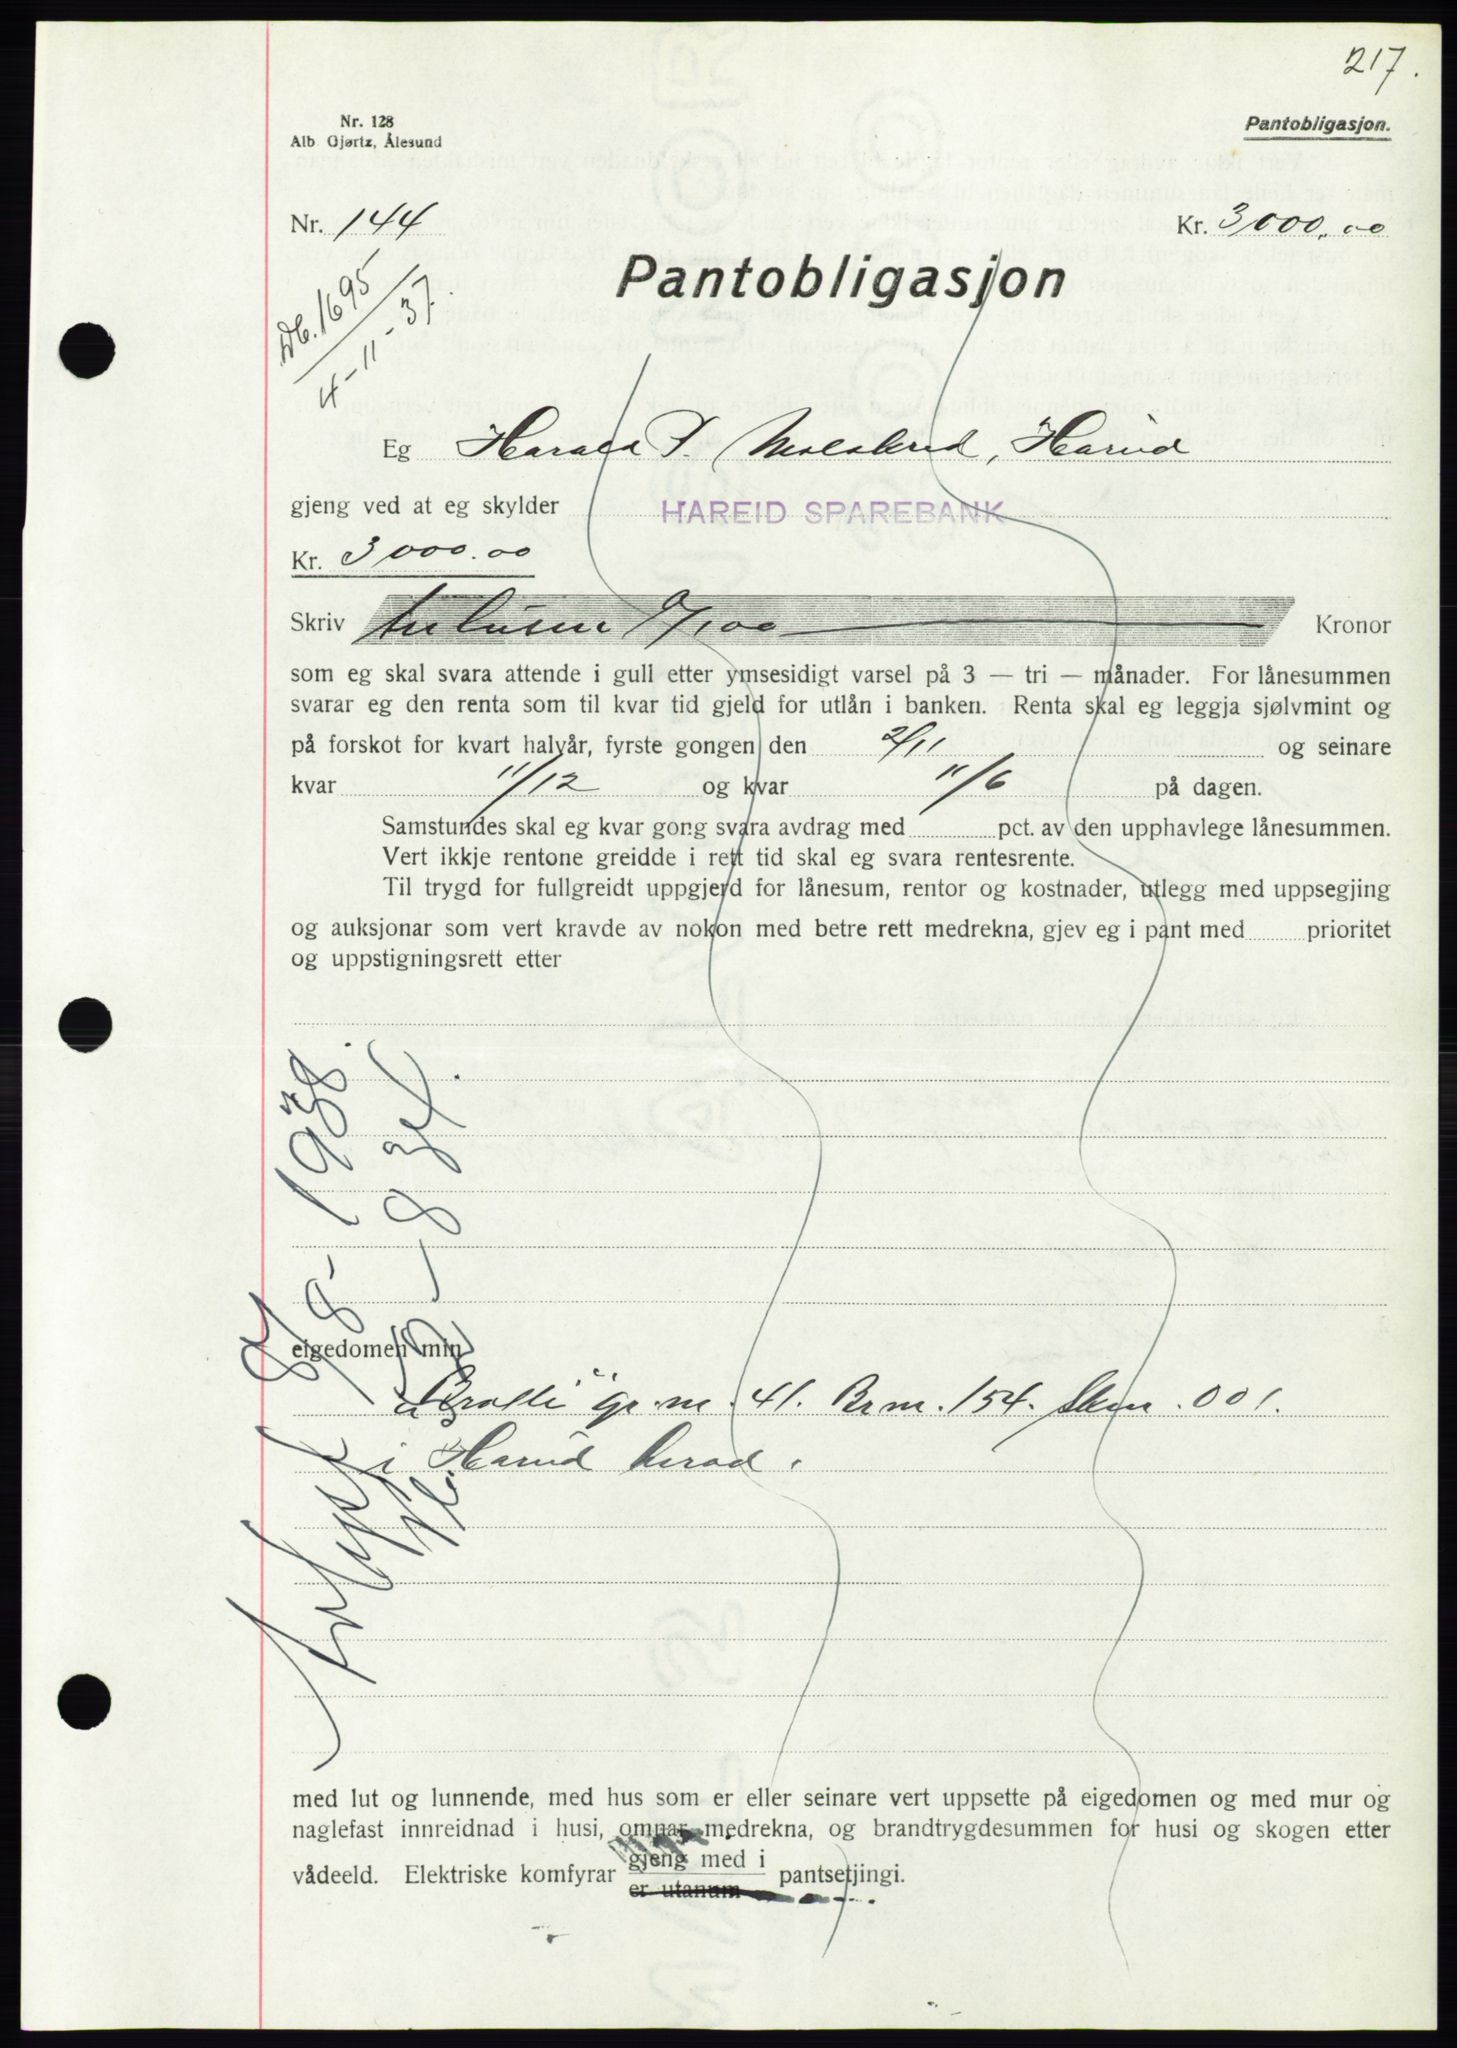 217.
Nr. 128
Alb Gjørtz, Ålesund
Pantobligasjon.
Nr. 144
Kr. 3000.00
Db. 1695
4-11-37.
Pantobligasjon
Eg Harald P. Hareid
gjeng ved at eg skylder HAREID SPAREBANK
Kr. 3000.00
Skriv tretusen 0/100 Kronor
som eg skal svara attende i gull etter ymsesidigt varsel på 3 — tri — månader. For lånesummen
svarar eg den renta som til kvar tid gjeld for utlån i banken. Renta skal eg leggja sjølvmint og
på forskot for kvart halvår, fyrste gongen den 2/11 og seinare
kvar 11/12 og kvar 11/6 på dagen.
Samstundes skal eg kvar gong svara avdrag med pct. av den upphavlege lånesummen.
Vert ikkje rentone greidde i rett tid skal eg svara rentesrente.
Til trygd for fullgreidt uppgjerd for lånesum, rentor og kostnader, utlegg med uppsegjing
og auksjonar som vert kravde av nokon med betre rett medrekna, gjev eg i pant med prioritet
og uppstigningsrett etter
eigedomen min
"Bratli" gr. nr. 41. Br nr. 154. Skm. 001.
i Hareid herad.
Avlyst 8/8-1938.
med lut og lunnende, med hus som er eller seinare vert uppsette på eigedomen og med mur og
naglefast innreidnad i husi, omnar medrekna, og brandtrygdesummen for husi og skogen etter
vådeeld. Elektriske komfyrar gjeng med i pantsetjingi.
er utanum